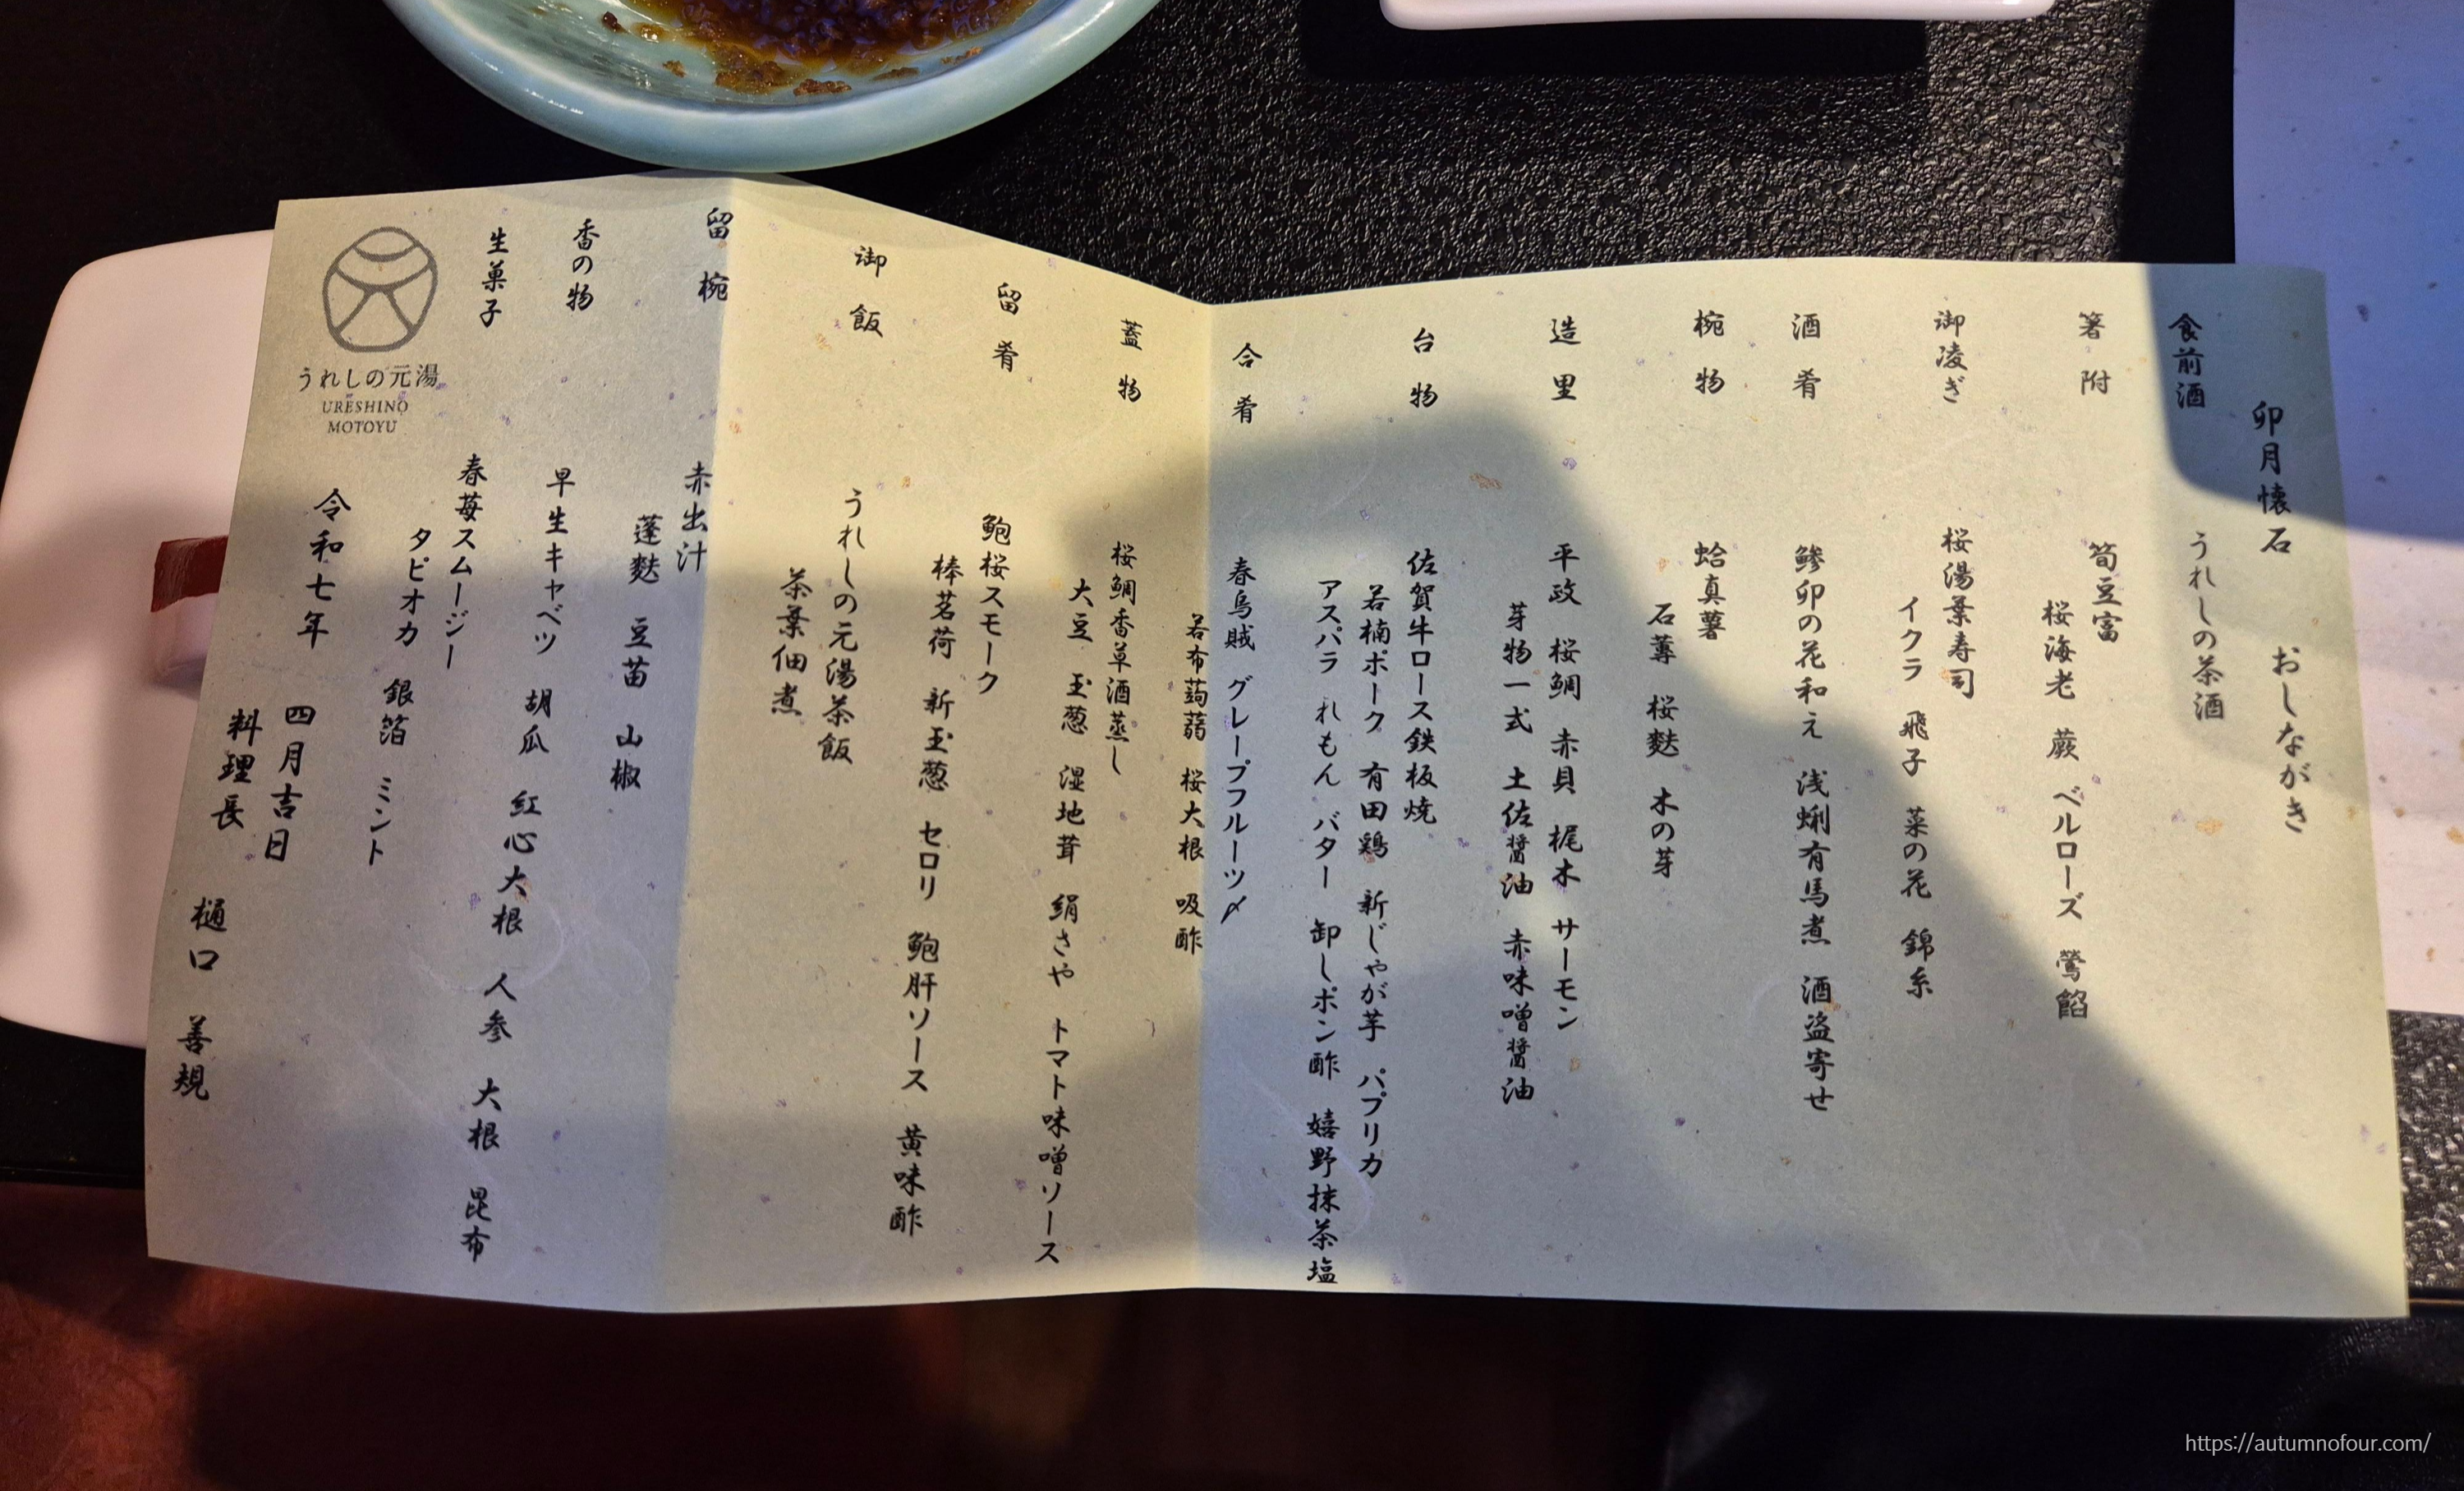 卯月懐石 おしながき
食前酒 うれしの茶酒
箸附 筍豆富
桜海老 蕨 ベルローズ 鶯餡
御凌ぎ 桜湯葉寿司
イクラ 飛子 菜の花 錦糸
酒肴 鰺卯の花和え 浅蜊有馬煮 酒盗寄せ
椀物 蛤真薯
石蓴 桜麩 木の芽
造里 平政 桜鯛 赤貝 梶木 サーモン
芽物一式 土佐醤油 赤味噌醤油
台物 佐賀牛ロース鉄板焼
若楠ポーク 有田鶏 新じゃが芋 パプリカ
アスパラ れもん バター 卸しポン酢 嬉野抹茶塩
合肴 春烏賊 グレープフルーツ〆
若布蒟蒻 桜大根 吸酢
蓋物 桜鯛香草酒蒸し
大豆 玉葱 湿地茸 絹さや トマト味噌ソース
留肴 鮑桜スモーク
棒茗荷 新玉葱 セロリ 鮑肝ソース 黄味酢
御飯 うれしの元湯茶飯
茶葉佃煮
留椀 赤出汁
蓬麩 豆苗 山椒
香の物 早生キャベツ 胡瓜 紅心大根 人参 大根 昆布
生菓子 春苺スムージー
タピオカ 銀箔 ミント
令和七年 四月吉日
料理長 樋口 善規
うれしの元湯
URESHINO
MOTOYU
https://autumnofour.com/